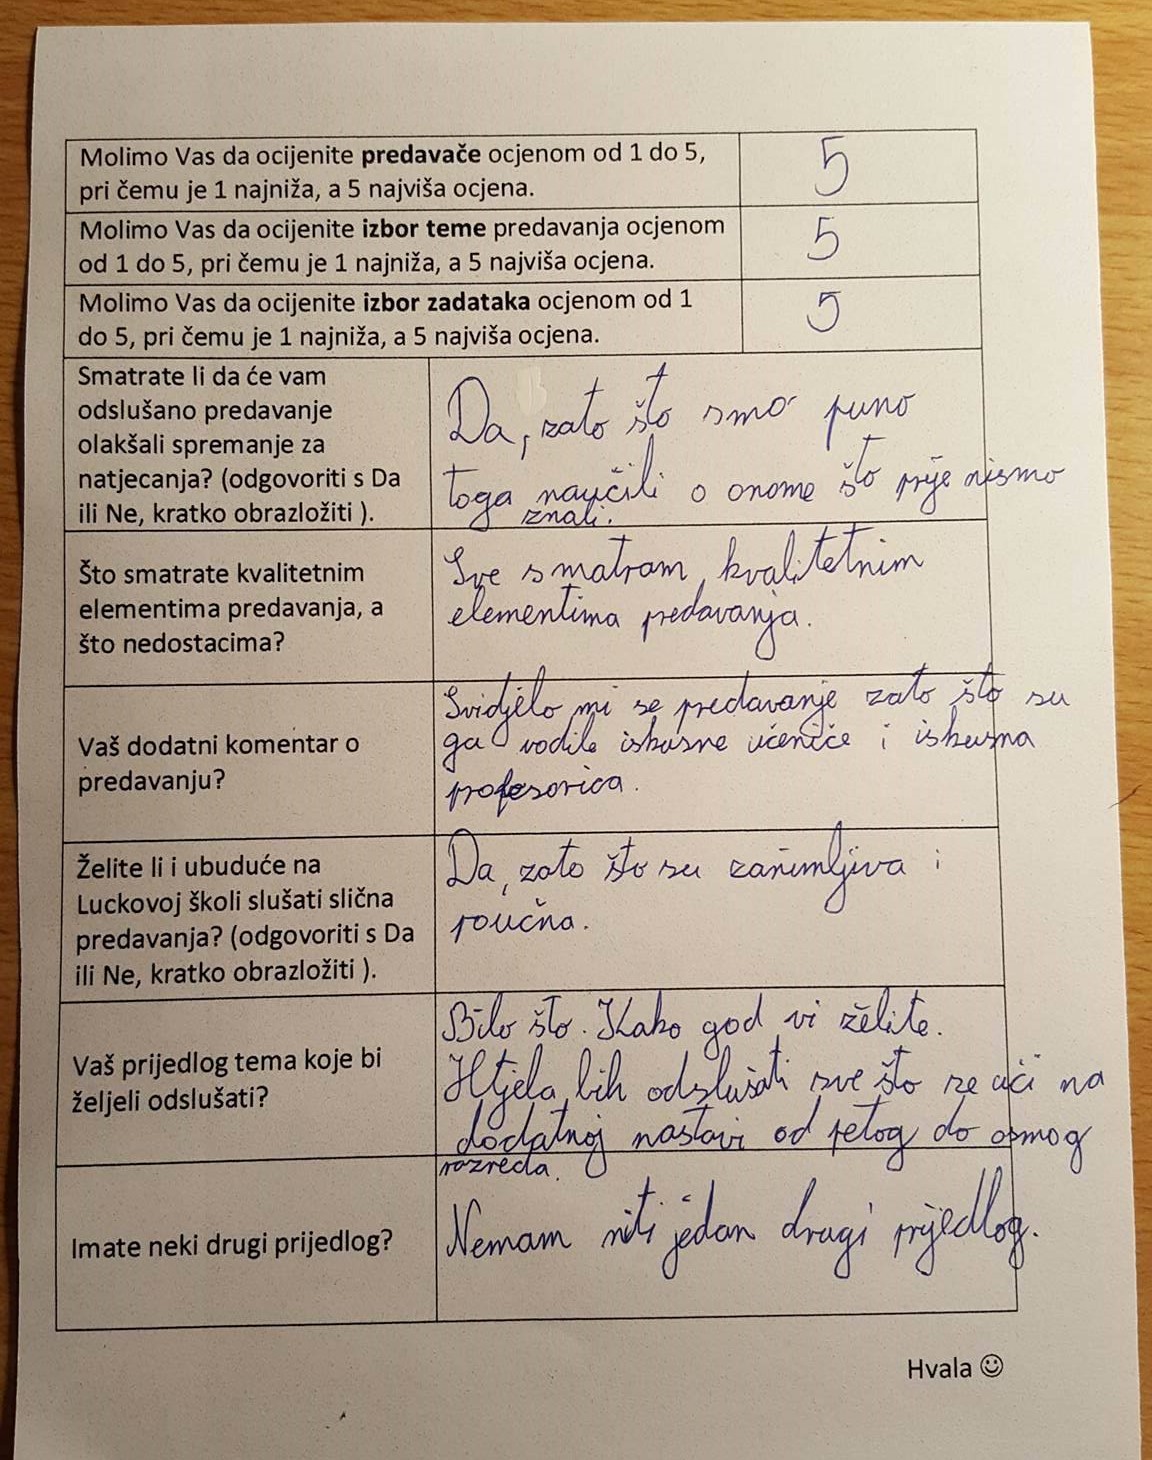 Molimo Vas da ocijenite predavače ocjenom od 1 do 5,
pri čemu je 1 najniža, a 5 najviša ocjena.
5
Molimo Vas da ocijenite izbor teme predavanja ocjenom
od 1 do 5, pri čemu je 1 najniža, a 5 najviša ocjena.
5
Molimo Vas da ocijenite izbor zadataka ocjenom od 1
do 5, pri čemu je 1 najniža, a 5 najviša ocjena.
5
Smatrate li da će vam
odslušano predavanje
olakšali spremanje za
natjecanja? (odgovoriti s Da
ili Ne, kratko obrazložiti ).
Da, zato što smo puno
toga naučili o onome što prije nismo
znali.
Što smatrate kvalitetnim
elementima predavanja, a
što nedostacima?
Sve smatram kvalitetnim
elementima predavanja.
Vaš dodatni komentar o
predavanju?
Svidjelo mi se predavanje zato što su
ga vodile iskusne učeniče i iskusna
profesorica.
Želite li i ubuduće na
Luckovoj školi slušati slična
predavanja? (odgovoriti s Da
ili Ne, kratko obrazložiti ).
Da, zato što su zanimljiva i
poučna.
Vaš prijedlog tema koje bi
željeli odslušati?
Bilo što. Kako god vi želite.
Htjela bih odslušati sve što se uči na
dodatnoj nastavi od petog do osmog
razreda.
Imate neki drugi prijedlog?
Nemam niti jedan drugi prijedlog.
Hvala ☺